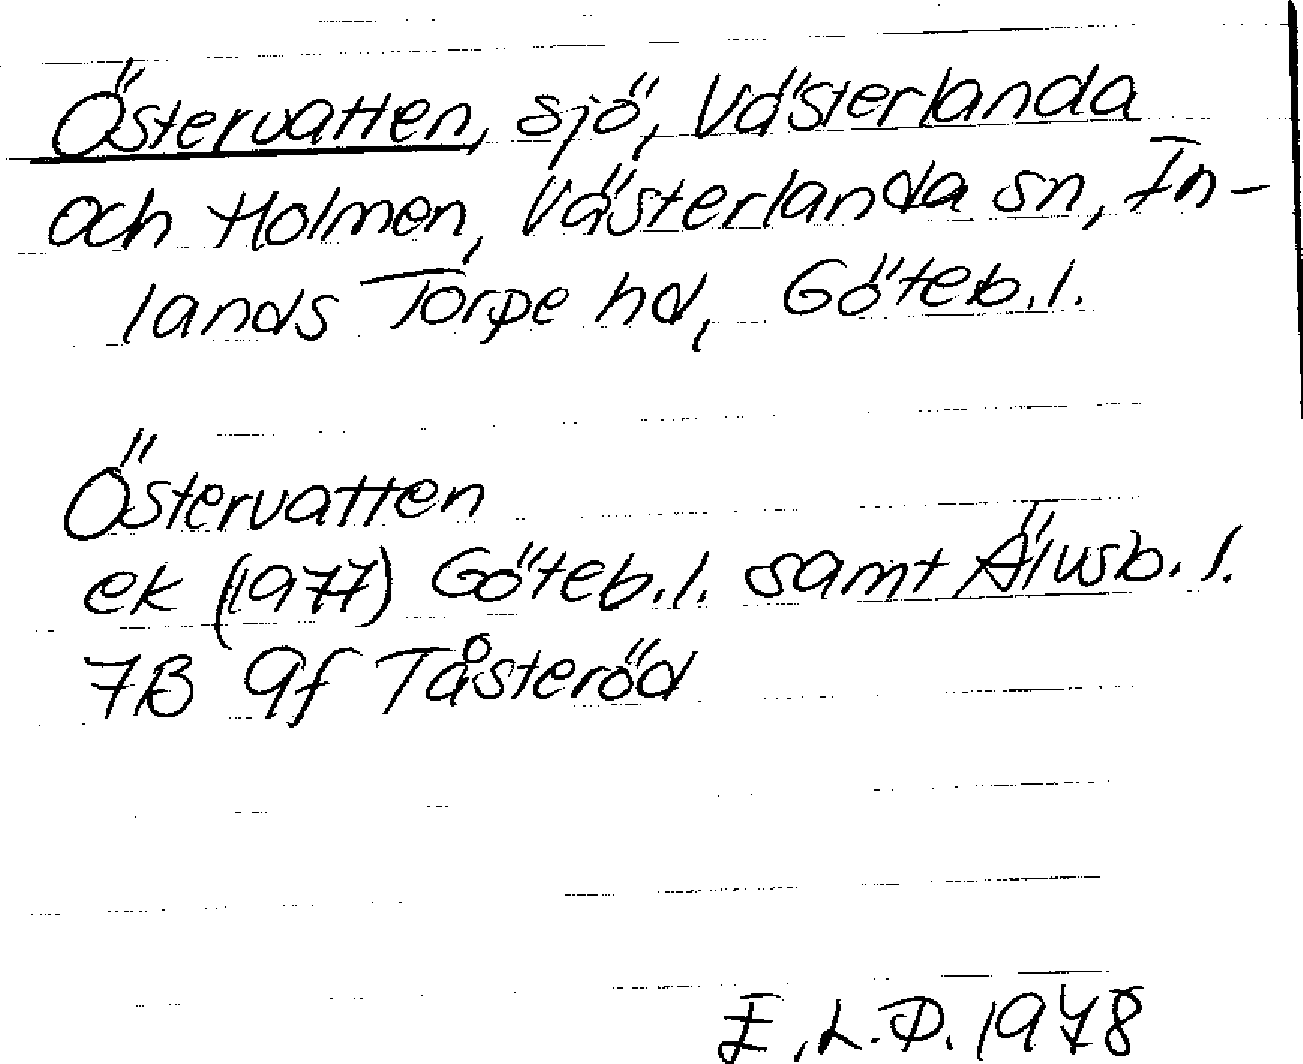 Östervatten, sjö, Västerlanda
och Holmen, Västerlanda sn, In-
lands Torpe hd, Göteb.l.
Östervatten
ek (1977) Göteb.l. samt Älvsb.l.
7B 9f Tåsteröd
E.L.D. 1978